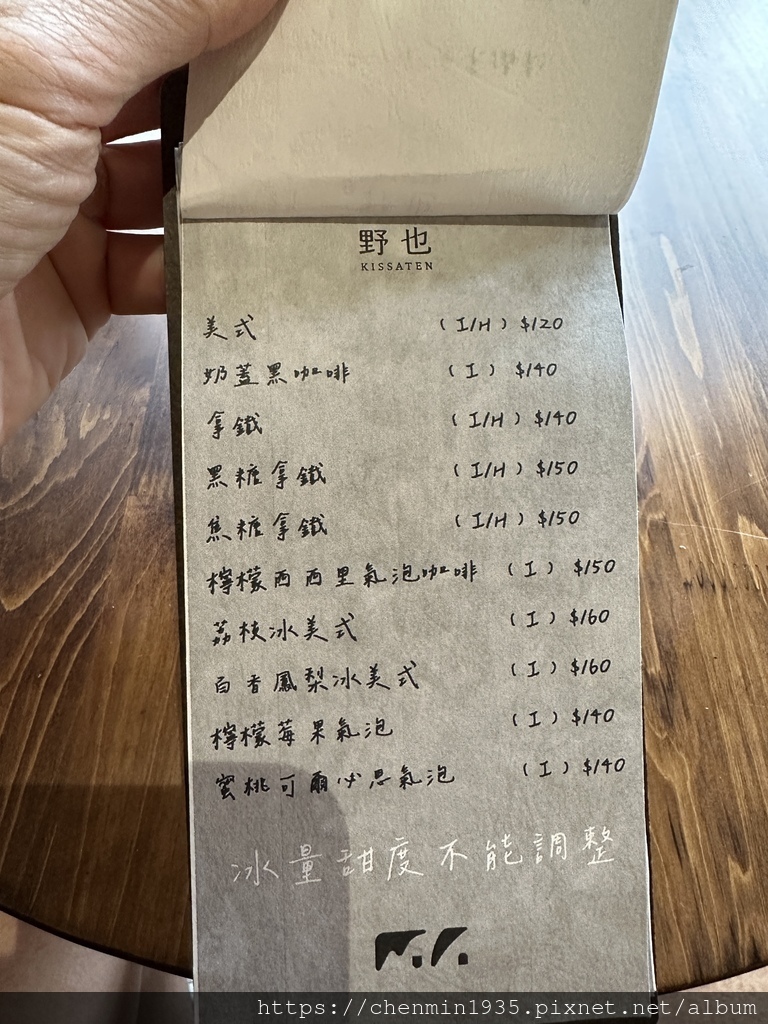 野也
KISSATEN
美式 (I/H) $120
奶蓋黑咖啡 (I) $140
拿鐵 (I/H) $140
黑糖拿鐵 (I/H) $150
焦糖拿鐵 (I/H) $150
檸檬西西里氣泡咖啡 (I) $150
荔枝冰美式 (I) $160
百香鳳梨冰美式 (I) $160
檸檬莓果氣泡 (I) $140
蜜桃可爾必思氣泡 (I) $140
冰量甜度不能調整
https://chenmin1935.pixnet.net/album